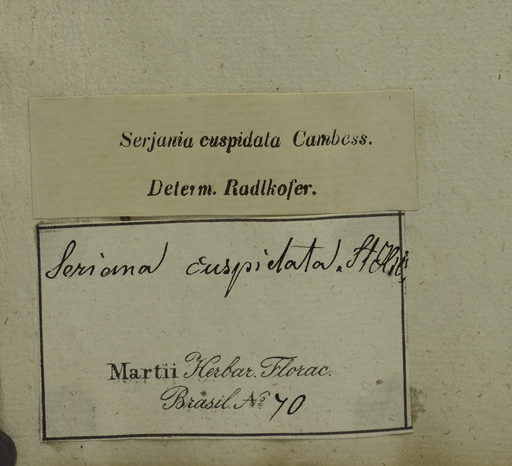 Serjania cuspidata Cambess.
Determ. Radlkofer.
Seriana cuspidata. St Hil
Martii Herbar. Florae.
Brasil. No 70